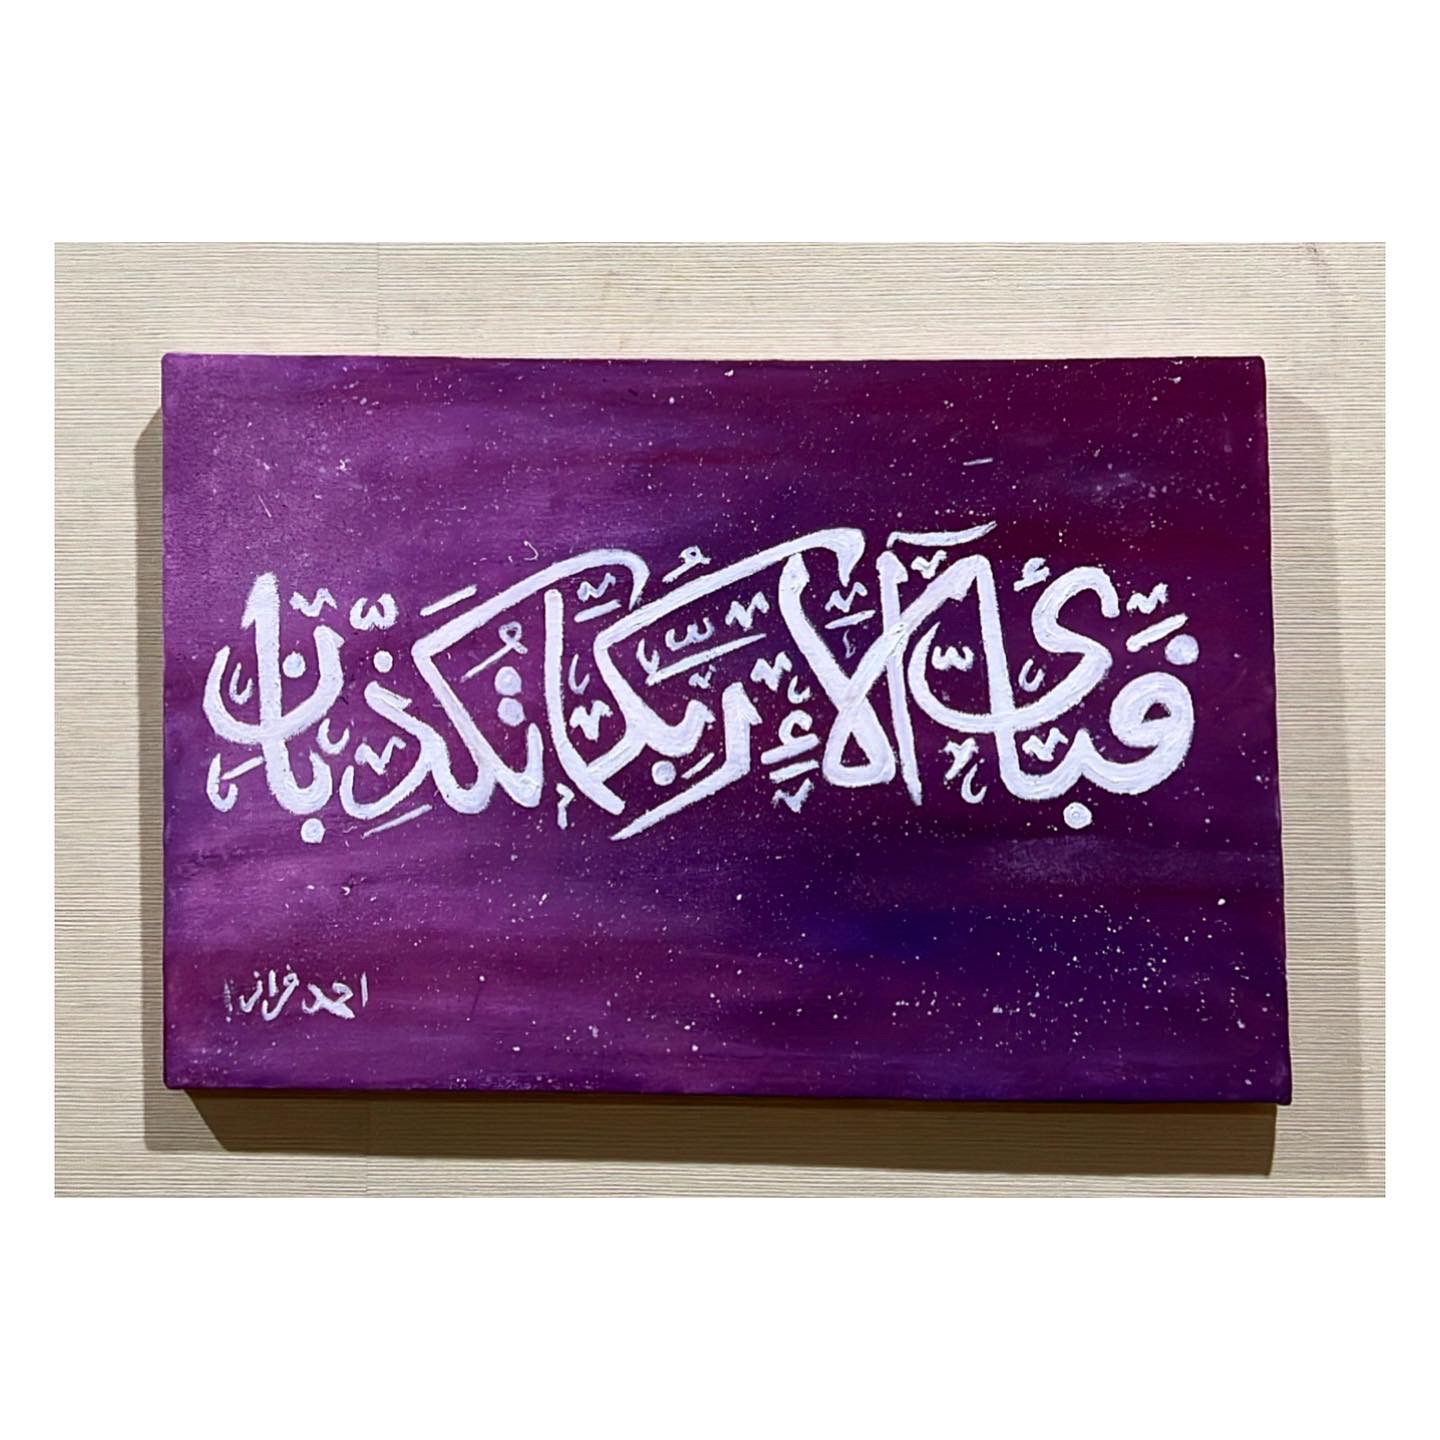 فَبِأَيِّ آلَاءِ رَبِّكُمَا تُكَذِّبَانِ
احمد فراز